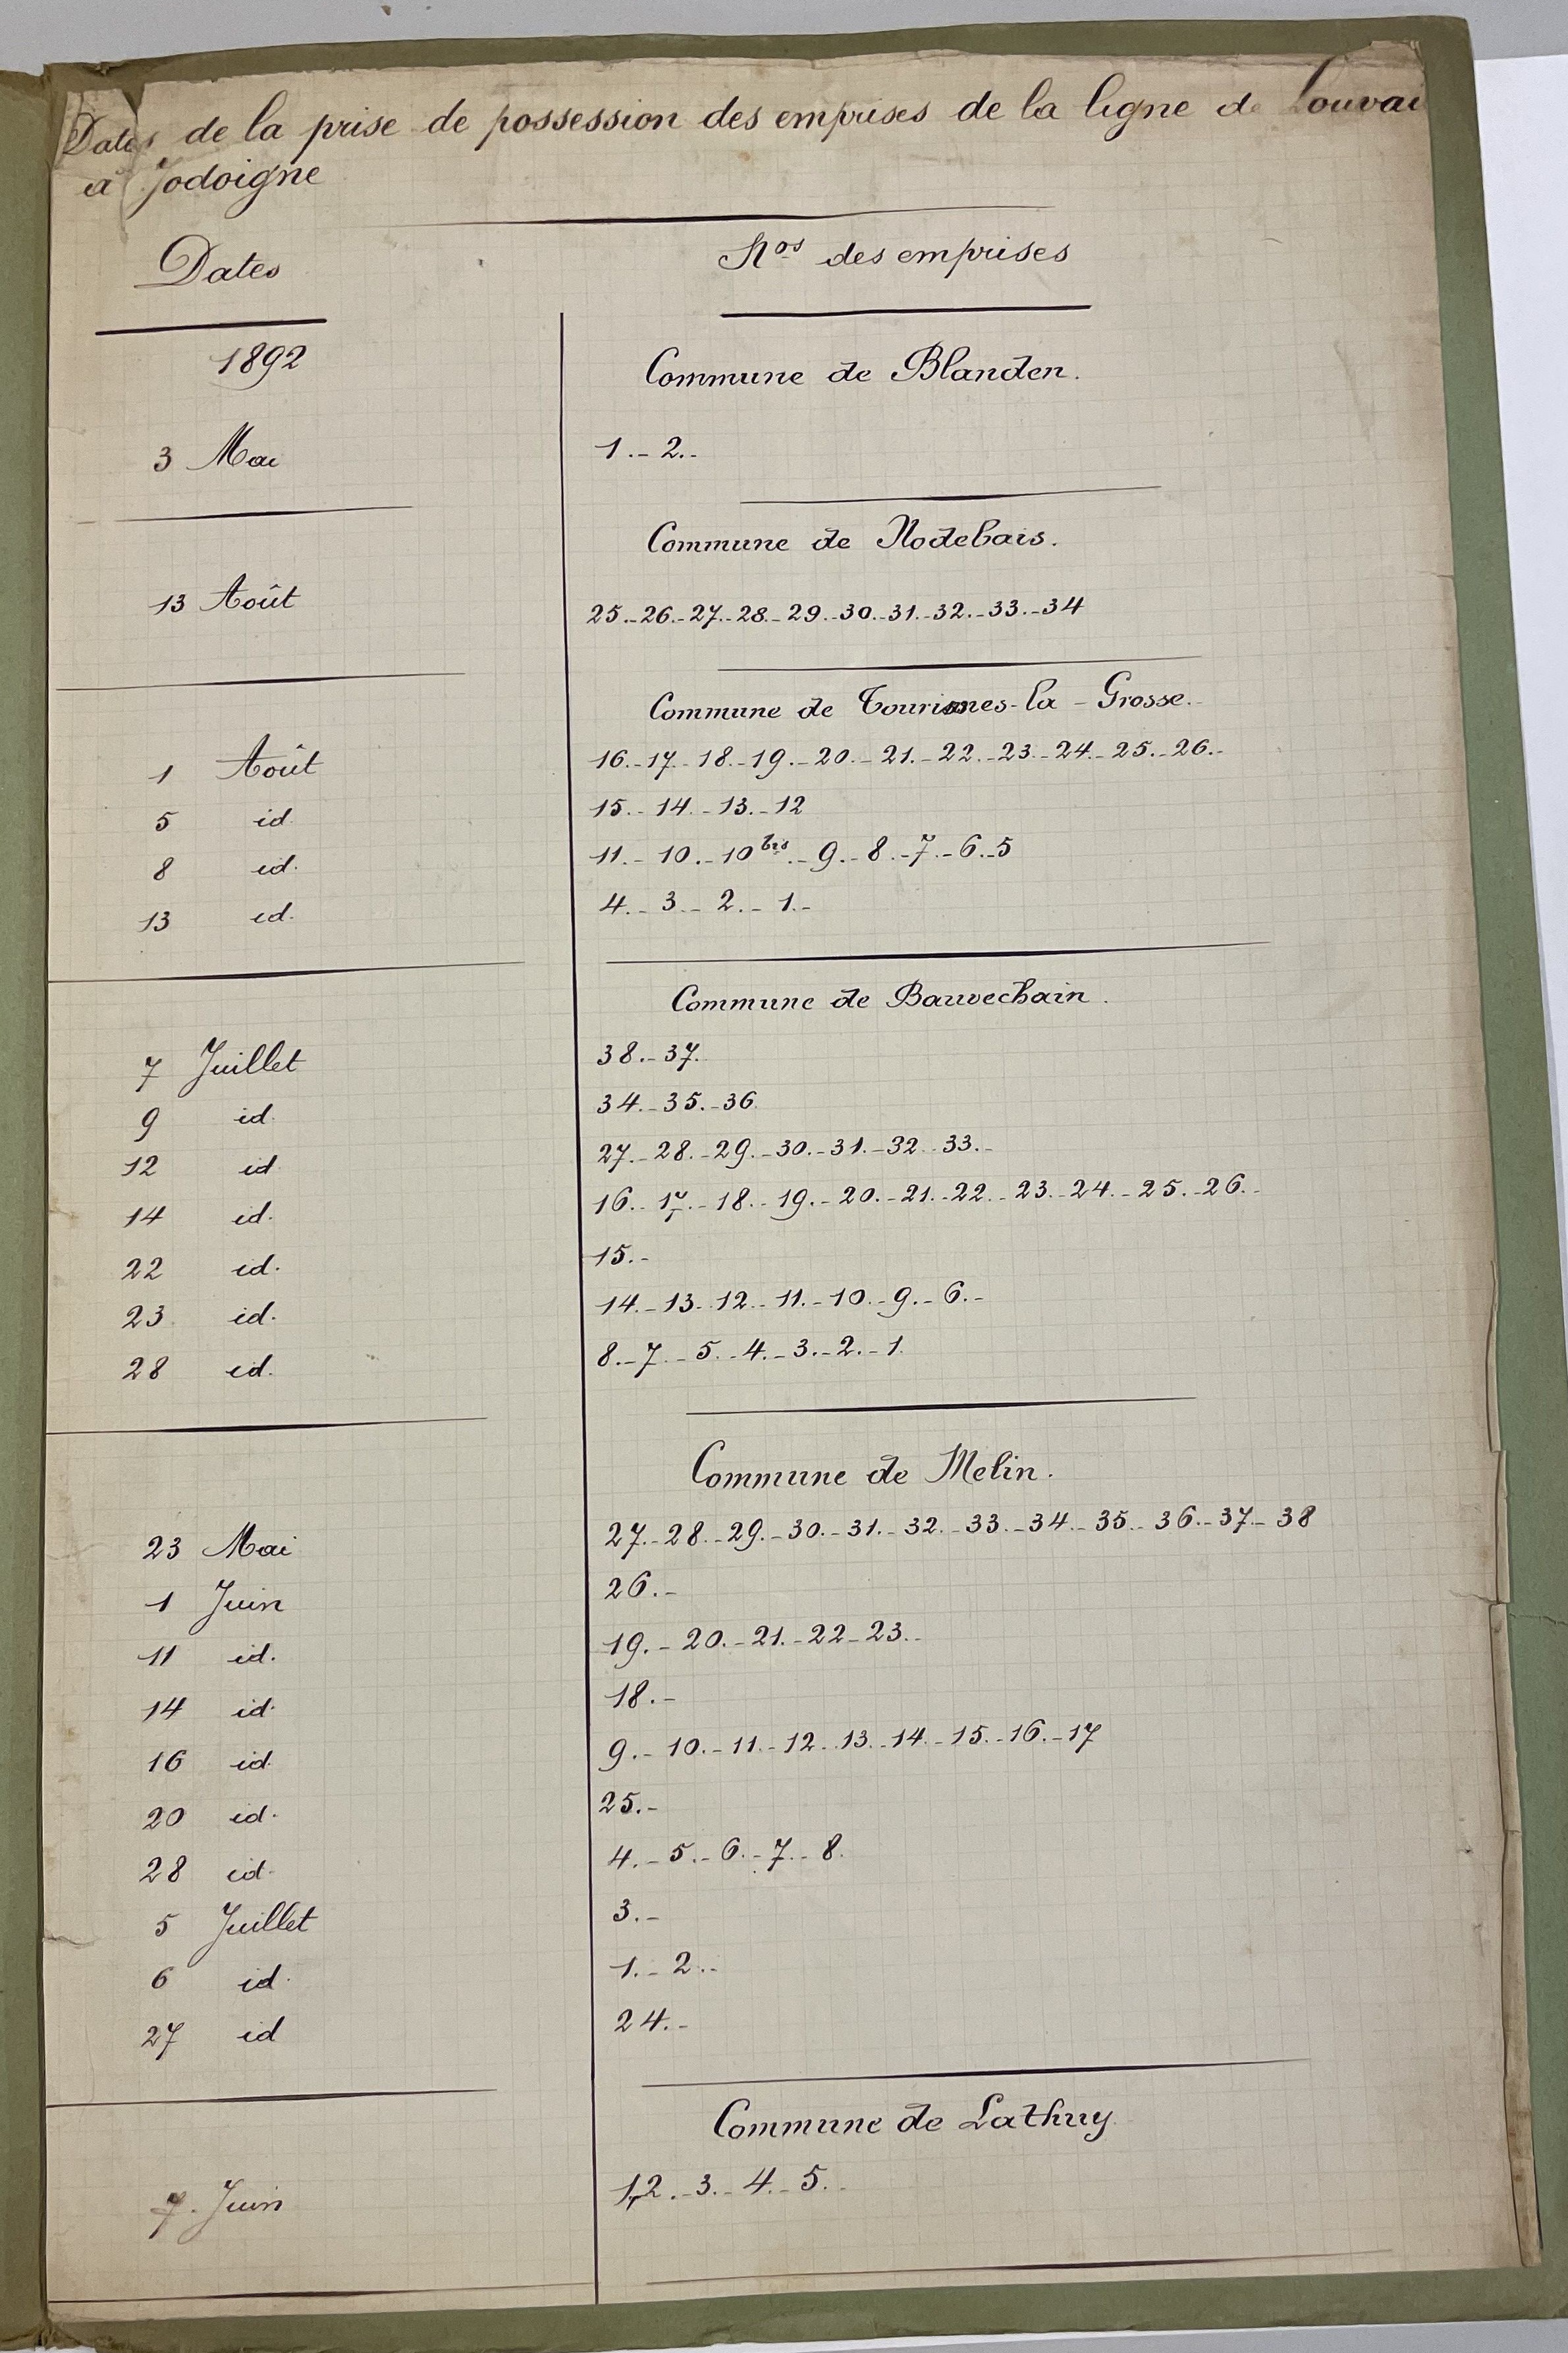 Dates de la prise de possession des emprises de la ligne de Louvai
à Jodoigne
Dates Nos des emprises
1892 Commune de Blanden.
3 Mai 1.- 2.-
Commune de Nodebais.
13 Août 25.-26.-27.-28.-29.-30.-31.-32.-33.-34
Commune de Tourinnes-la-Grosse.-
1 Août 16.-17.-18.-19.-20.-21.-22.-23.-24.-25.-26.-
5 id. 15.-14.-13.-12
8 id. 11.-10.-10bis.-9.-8.-7.-6.-5
13 id. 4.-3.-2.-1.-
Commune de Bauvechain.
7 Juillet 38.-37.
9 id. 34.-35.-36
12 id. 27.-28.-29.-30.-31.-32.-33.-
14 id. 16.-17.-18.-19.-20.-21.-22.-23.-24.-25.-26.-
22 id. 15.-
23 id. 14.-13.-12.-11.-10.-9.-6.-
28 id. 8.-7.-5.-4.-3.-2.-1.
Commune de Melin.
23 Mai 27.-28.-29.-30.-31.-32.-33.-34.-35.-36.-37.-38
1 Juin 26.-
11 id. 19.-20.-21.-22-23.-
14 id. 18.-
16 id. 9.-10.-11.-12.-13.-14.-15.-16.-17
20 id. 25.-
28 id. 4.-5.-6.-7.-8.
5 Juillet 3.-
6 id. 1.-2.-
27 id 24.-
Commune de Lathuy
7. Juin 1,2.-3.-4.-5.-